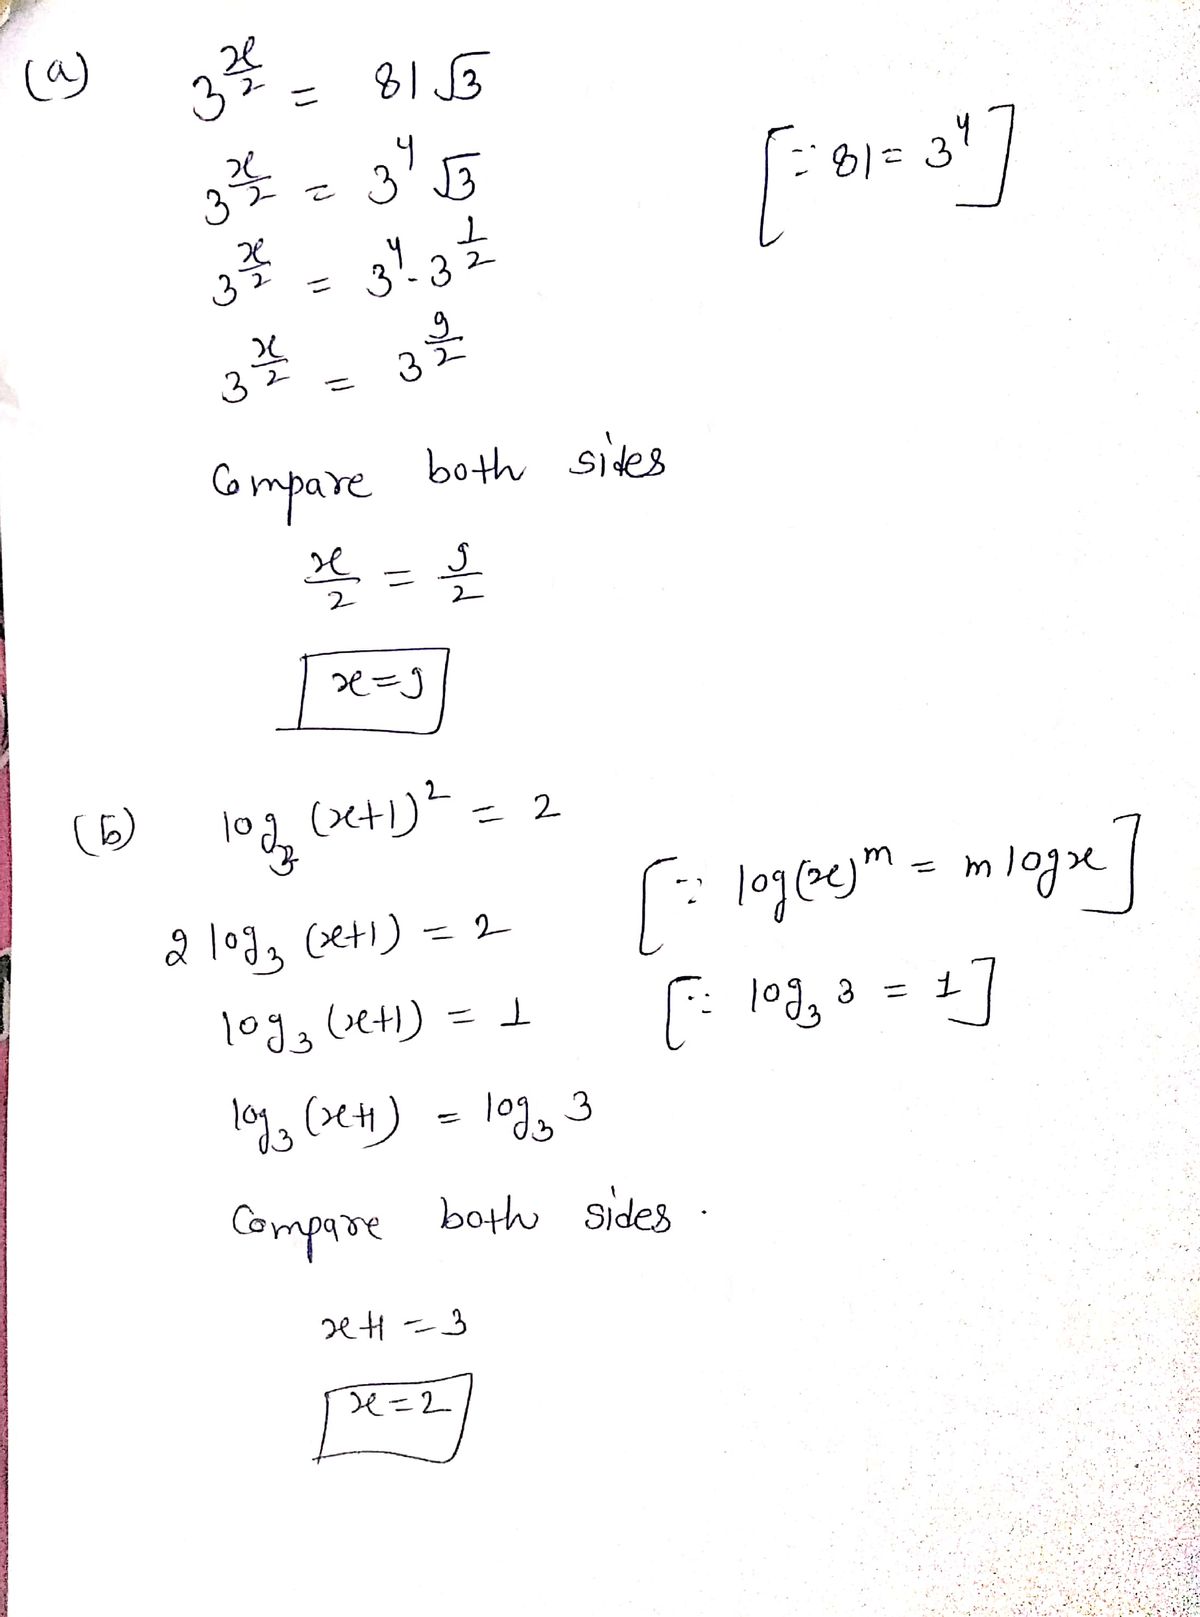 (a) 3^(x/2) = 81√3
3^(x/2) = 3^4 √3 [∵ 81 = 3^4]
3^(x/2) = 3^4 · 3^(1/2)
3^(x/2) = 3^(9/2)
Compare both sides
x/2 = 9/2
x = 9
(b) log₃ (x+1)² = 2
2 log₃ (x+1) = 2 [∵ log(x)^m = m log x]
log₃ (x+1) = 1 [∵ log₃ 3 = 1]
log₃ (x+1) = log₃ 3
Compare both sides.
x+1 = 3
x = 2